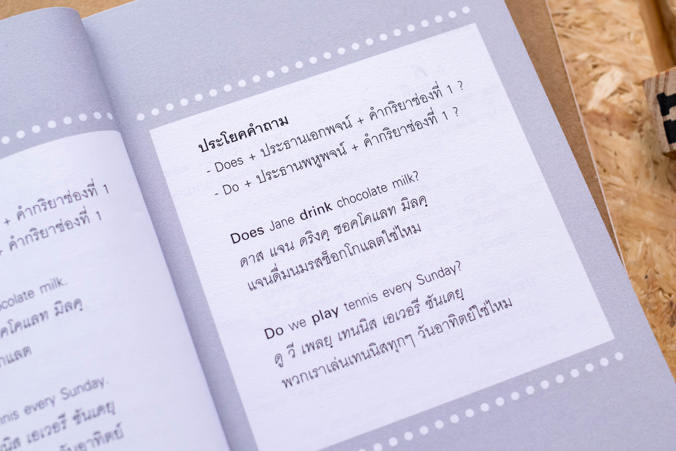 + คำกริยาช่องที่ 1
+ คำกริยาช่องที่ 1
milk.
มิลคฺ
every Sunday.
เอเวอรี ซันเดยฺ
วันอาทิตย์
ประโยคคำถาม
- Does + ประธานเอกพจน์ + คำกริยาช่องที่ 1 ?
- Do + ประธานพหูพจน์ + คำกริยาช่องที่ 1 ?
Does Jane drink chocolate milk?
ดาส แจน ดริงคฺ ชอคโคแลท มิลคฺ
แจนดื่มนมรสช็อกโกแลตใช่ไหม
Do we play tennis every Sunday?
ดู วี เพลยฺ เทนนิส เอเวอรี ซันเดยฺ
พวกเราเล่นเทนนิสทุกๆ วันอาทิตย์ใช่ไหม